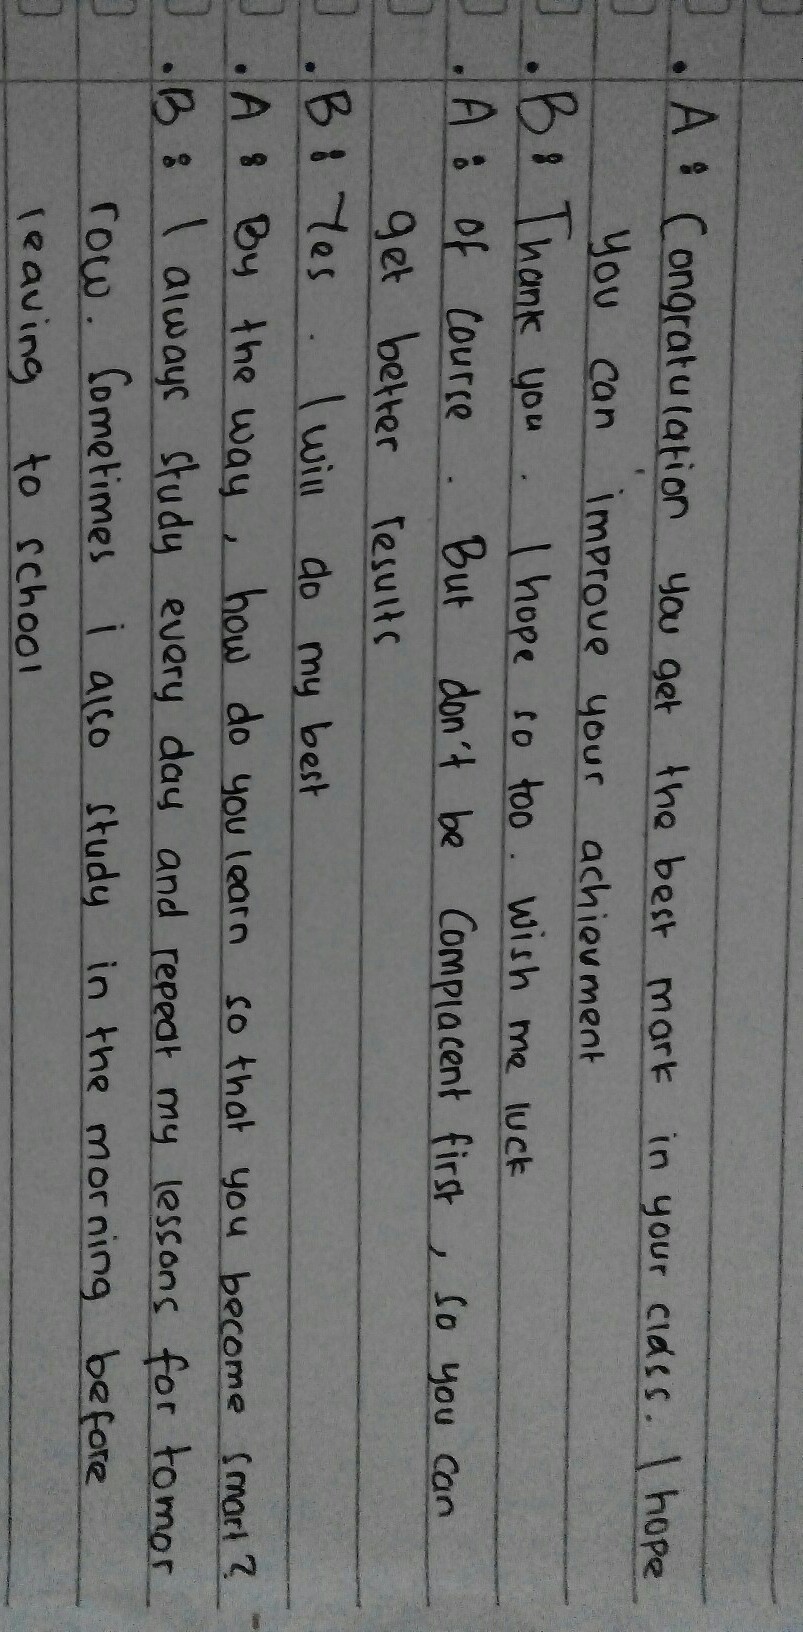 . A : Congratulation you get the best mark in your class. I hope
you can improve your achievment
. B : Thank you . I hope so too . Wish me luck
. A : of course . But don't be complacent first , so you can
get better results
. B : Yes . I will do my best
. A : By the way , how do you learn so that you become smart ?
. B : I always study every day and repeat my lessons for tomor
row . Sometimes i also study in the morning before
leaving to school